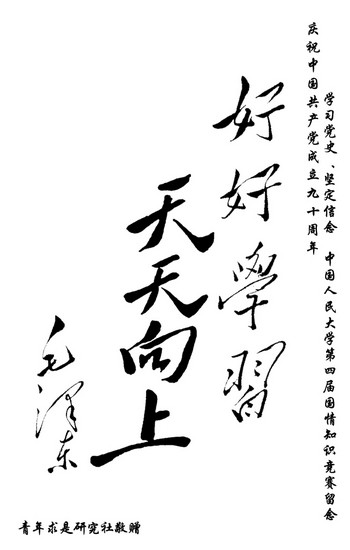 学习党史、坚定信念 中国人民大学第四届国情知识竞赛留念
庆祝中国共产党成立九十周年
好好學習
天天向上
毛泽东
青年求是研究社敬赠